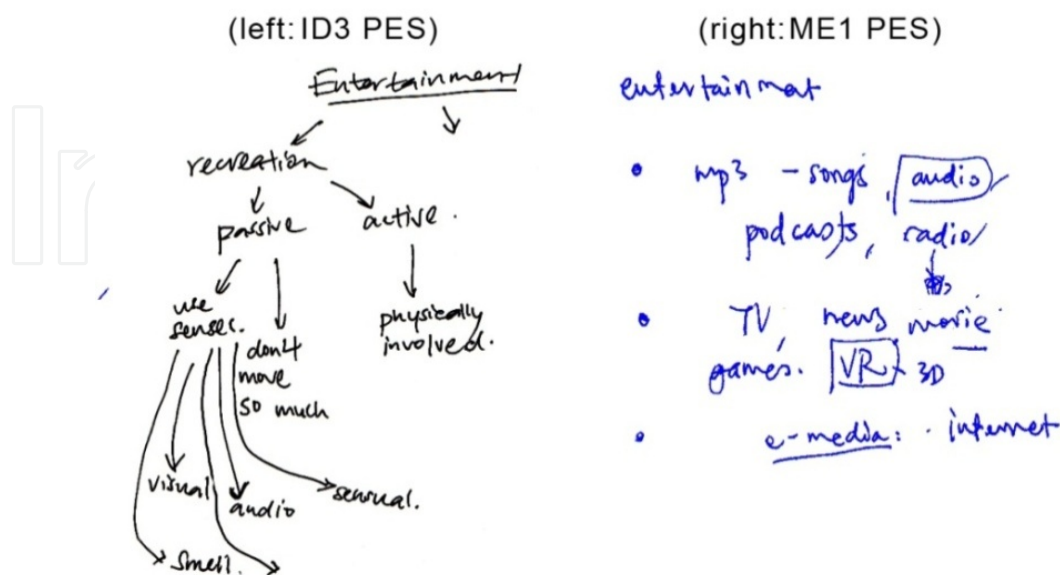 (left: ID3 PES)
Entertainment
recreation
passive
active.
use
senses.
don't
move
so much
physically
involved.
visual
audio
sensual.
smell.
(right: ME1 PES)
entertainmat
• mp3 - songs, audio,
podcasts, radio
• TV, news movie
games. VR - 3D
• e-media: · internet